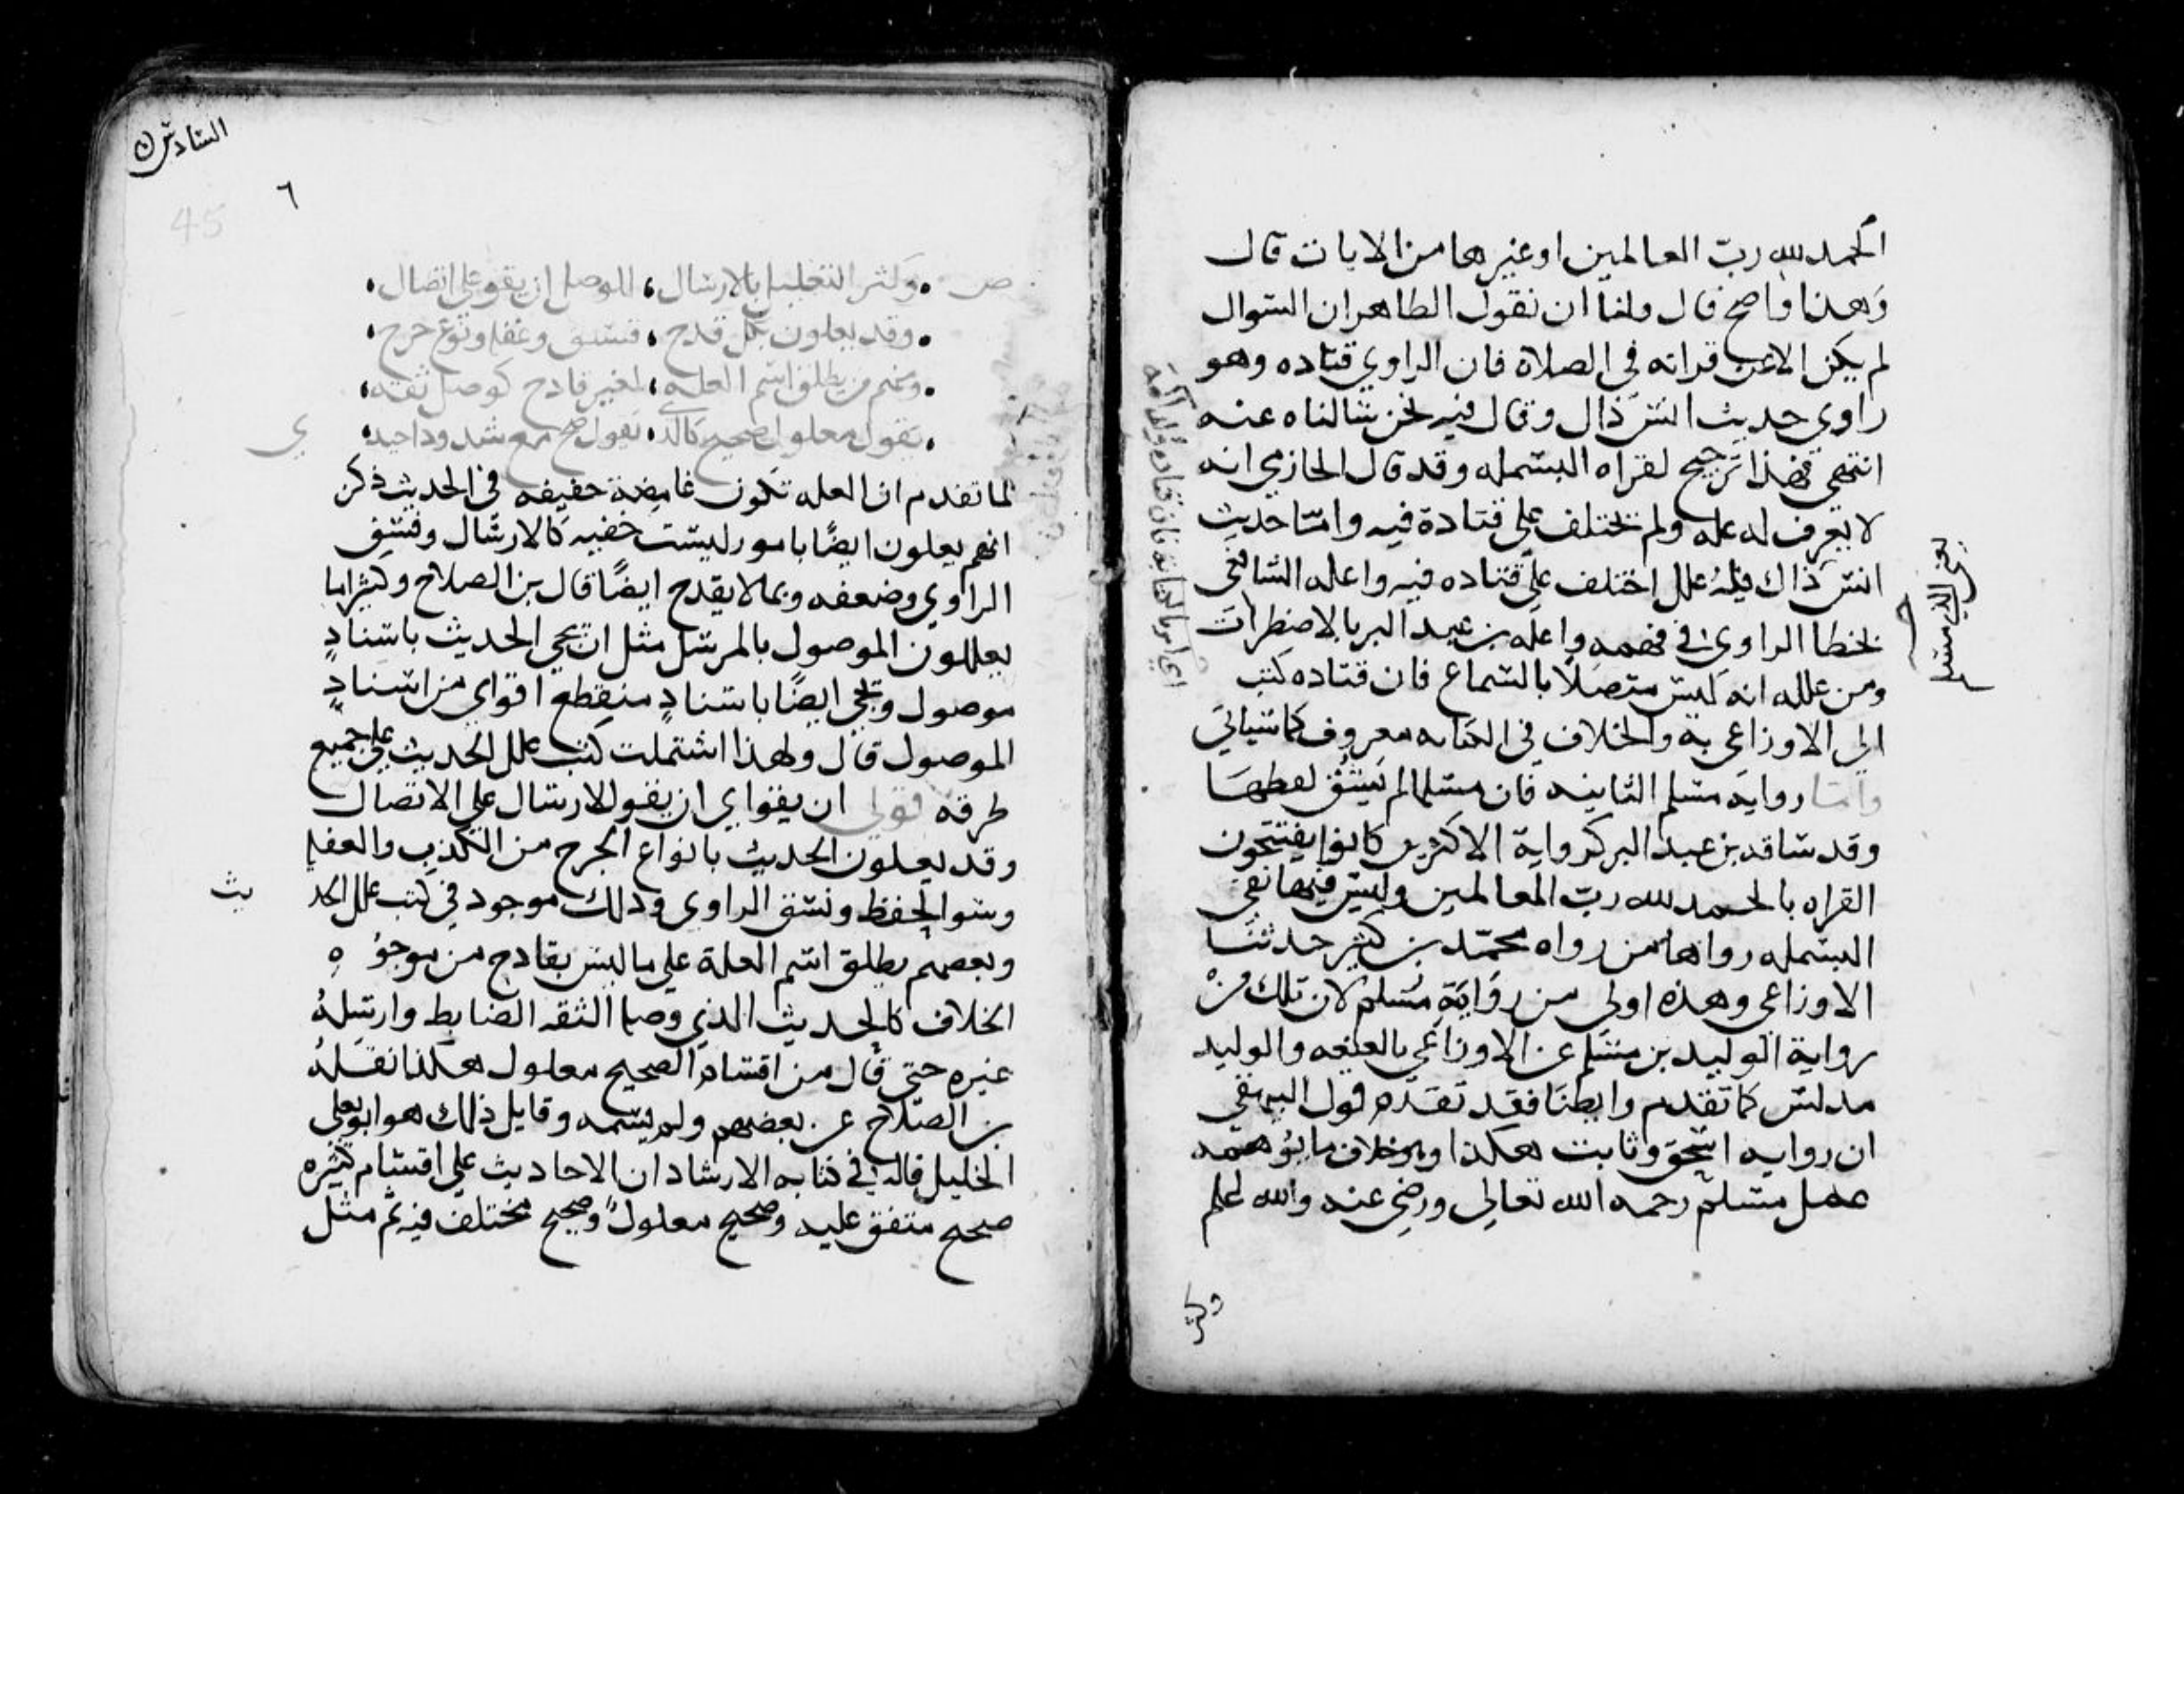 الحمد لله ربّ العالمين او غيرها من الايات قال
وَهذا واضح قال ولنا ان نقول الظاهر ان السوال
لم يكن الا عن قراته في الصلاة فان الراوي قتاده وهو
راوي حديث انس ذاك وقال فيه نحن سالناه عنه
انتهى فهذا ترجيح لقراه البسمله وقد قال الحازمي انه
لا يعرف له عله ولم يختلف على قتادة فيه وامّا حديث
انس ذاك فله علل اختلف على قتاده فيه واعله الشافعي
بخطا الراوي في فهمه واعله بن عبد البر بالاضطراب
ومن علله انه ليس متصلا بالسماع فان قتاده كتب
الي الاوزاعي به والخلاف في الكتابه معروف كما سياتي
وامّا رواية مسلم الثانيه فان مسلما لم يسق لفظهَا
وقد ساقه بن عبد البر كرواية الاكثرين كانوا يفتتحون
القراه بالحمد لله ربّ العالمين وليس فيها نفي
البسمله رواها من رواه محمّد بن كثير حدثنا
الاوزاعي وهذه اولي من رواية مسلم لان تلك من
رواية الوليد بن مسلم عن الاوزاعي بالعنعنه والوليد
مدلس كما تقدم وايضًا فقد تقدم قول البيهقي
ان روايه اسحق وثابت هكذا وهو خلاف ما يوهمه
عمل مسلم رحمه الله تعالي ورضي عنه والله اعلم
وكثر
السادس
٦
45
ص وكثر التعليل بالارسال، للوصل ان يقو على اتصال،
وقد يعلون بكل قدح، فسق وغفل ونوع جرح،
ومنهم من يطلق اسم العله، لغير قادح كوصل ثقه،
يقول معلول صحيح كالذي، يقول صح مع شذوذ احتذي
لما تقدم ان العله تكون غامضة خفيفه في الحديث ذكر
انهم يعلون ايضًا بامور ليست خفيه كالارسال وفسق
الراوي وضعفه وبما لا يقدح ايضًا قال بن الصلاح وكثيرا ما
يعللون الموصول بالمرسل مثل ان يجي الحديث باسنادٍ
موصول ويجي ايضًا باسنادٍ منقطع اقواي من اسنادٍ
الموصول قال ولهذا اشتملت كتب علل الحديث على جميع
طرقه قولي ان يقواي ان يقو الارسال على الاتصال
وقد يعلون الحديث بانواع الجرح من الكذب والغفله
وسو الحفظ وفسق الراوي وذلك موجود في كتب علل الحد يث
وبعضهم يطلق اسم العلة على ما ليس بقادح من وجوه
الخلاف كالحديث الذي وصله الثقه الضابط وارسله
غيره حتى قال من اقسام الصحيح معلول هكذا نقله
بن الصلاح عن بعضهم ولم يسمه وقايل ذلك هو ابو يعلى
الخليلي قاله في كتابه الارشاد ان الاحاديث على اقسام كثيره
صحيح متفق عليه وصحيح معلول وصحيح مختلف فيه ثم مثل